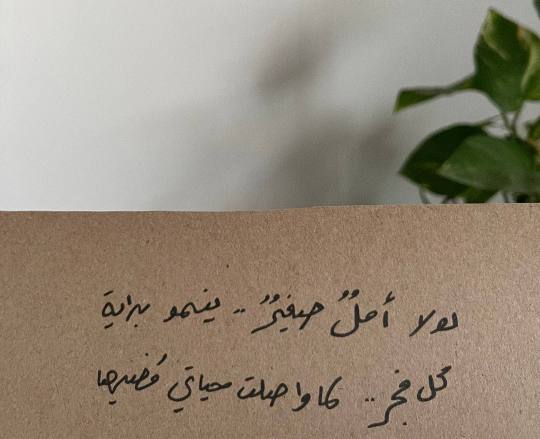 لولا أملٌ صغيرٌ .. ينمو بداية
كل فجر .. لما واصلت حياتي مُضيها